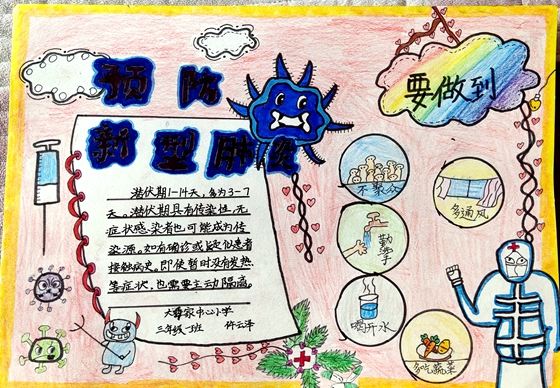 预防
新型肺炎
要做到
潜伏期1-14天，多为3-7
天。潜伏期具有传染性，无
症状感染者也可能成为传
染源。如有确诊或疑似患者
接触病史，即使暂时没有发热
等症状，也需要主动隔离。
中心小学
三年级一班
不聚众
多通风
勤洗手
喝开水
多吃蔬菜